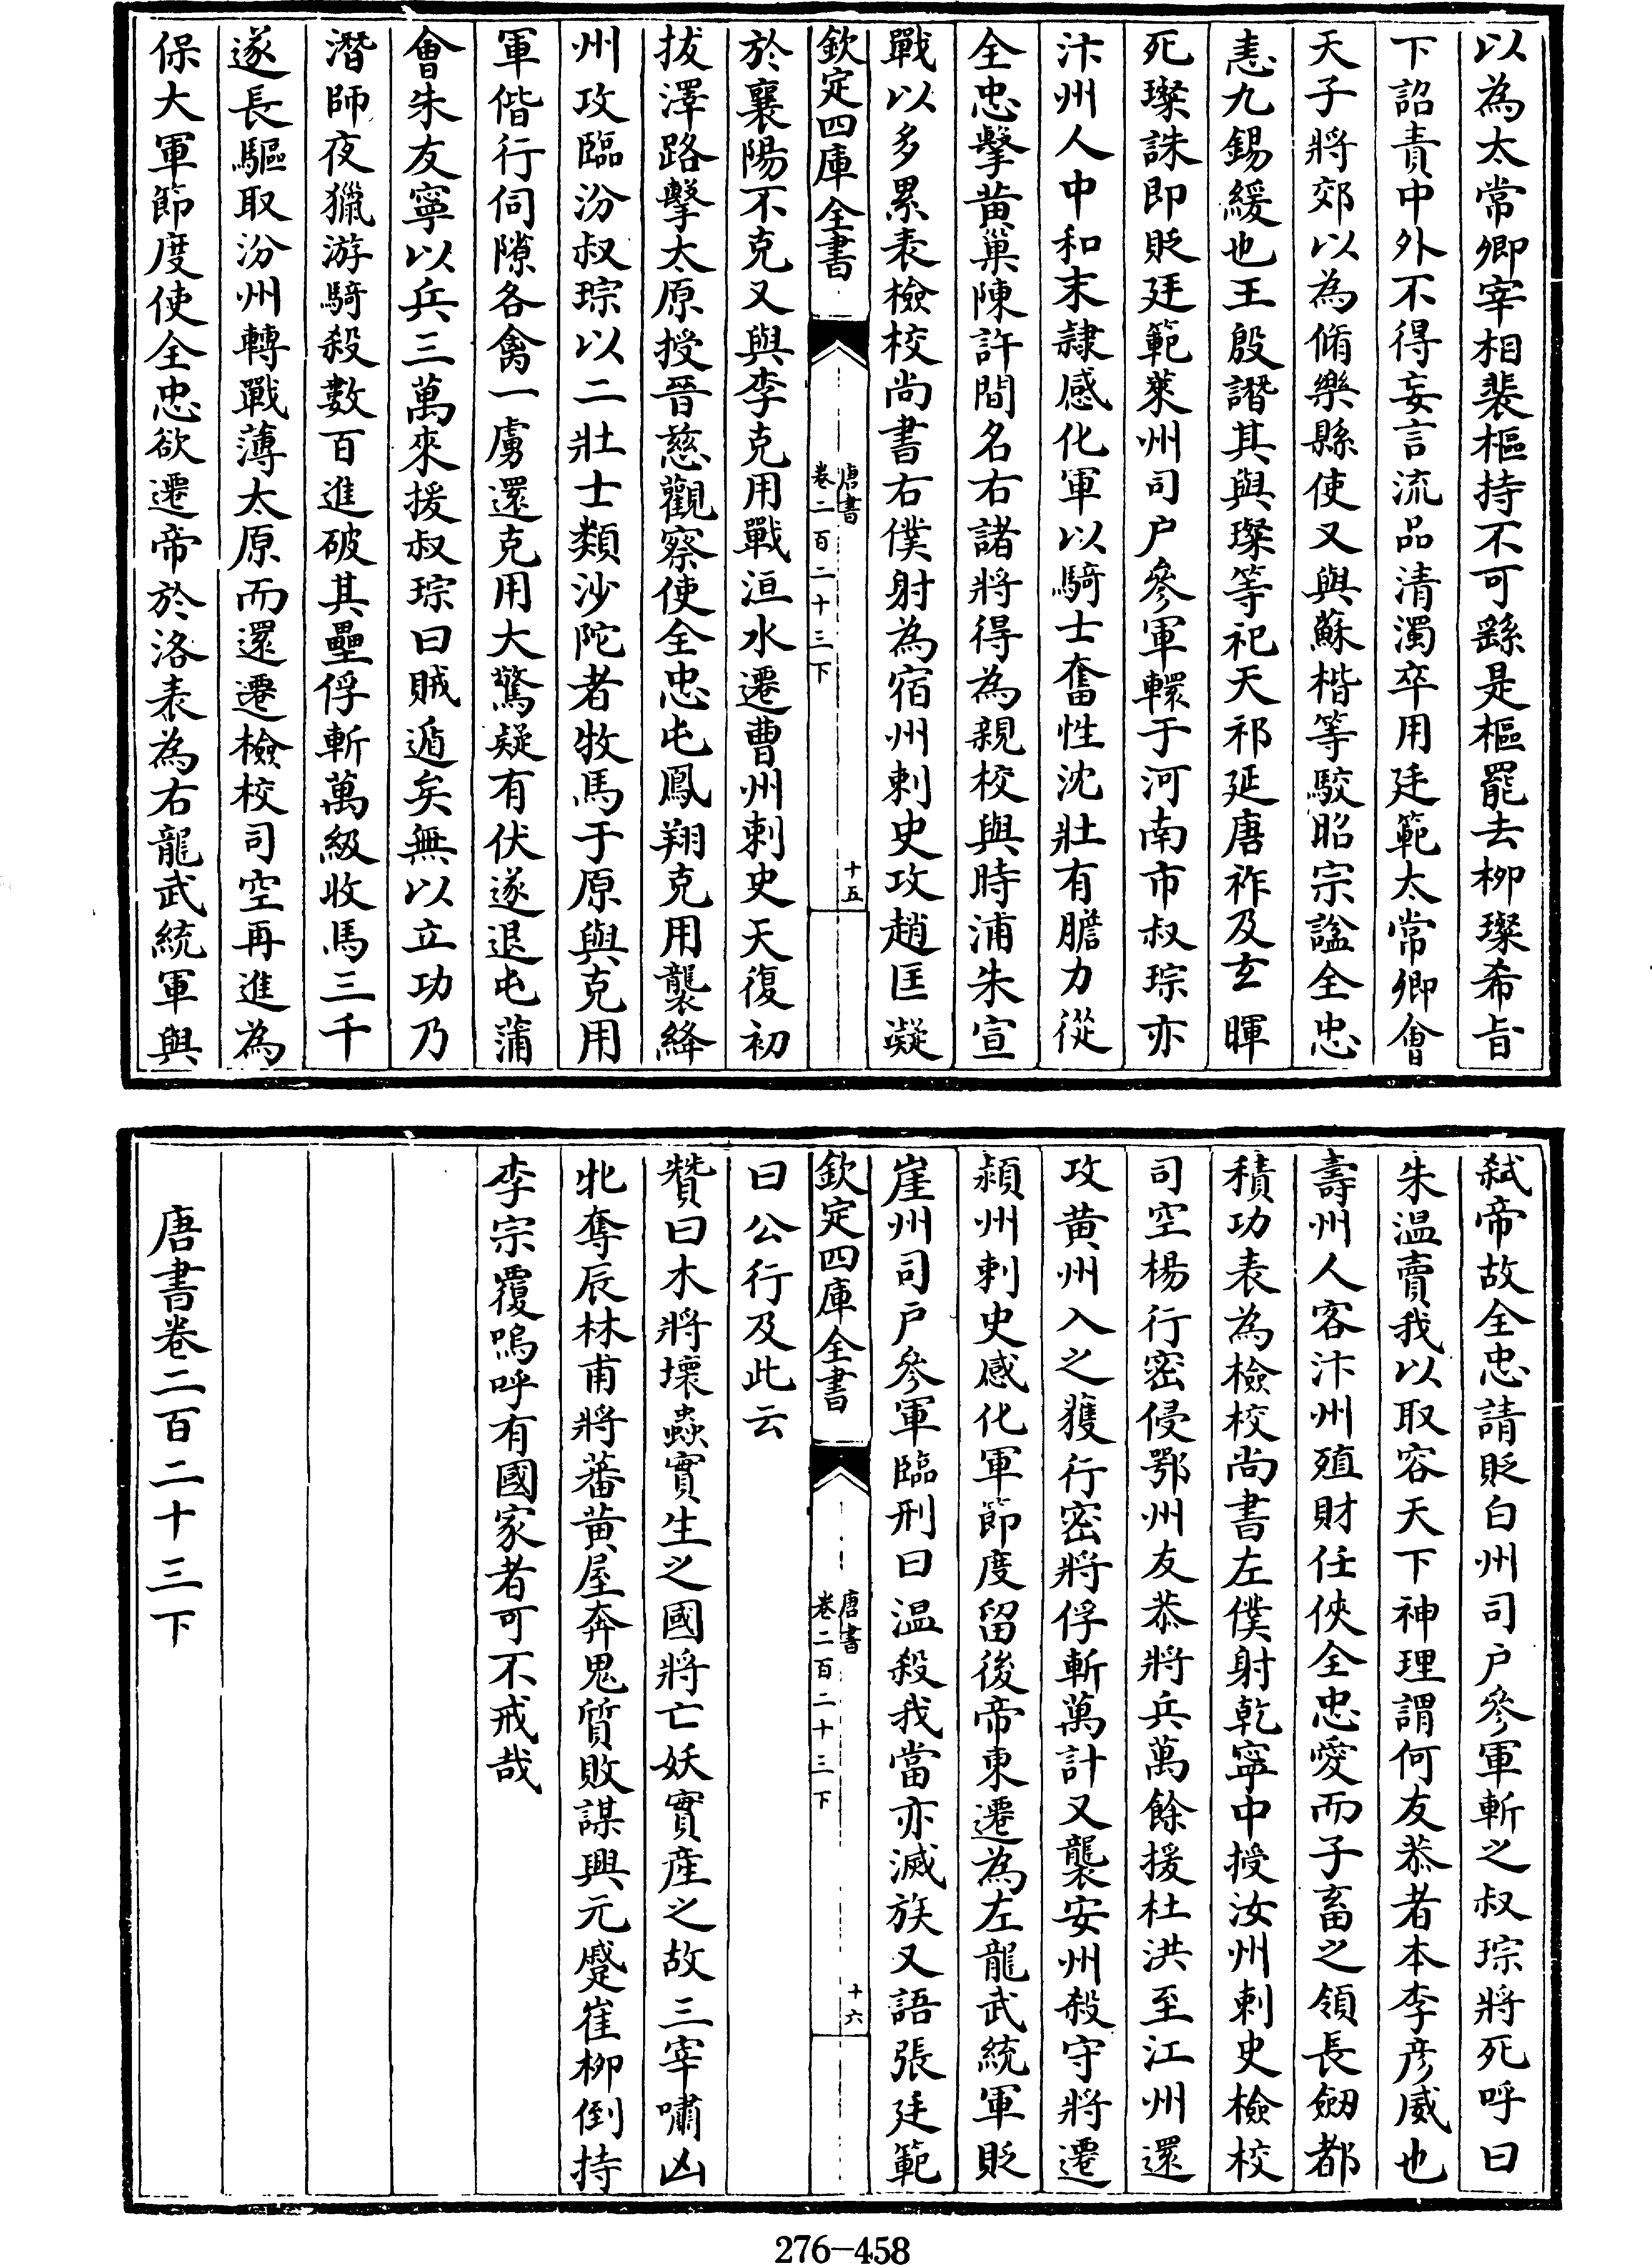 以為太常卿宰相裴樞持不可繇是樞罷去柳璨希旨
下詔責中外不得妄言流品清濁卒用廷範太常卿會
天子將郊以為脩樂縣使又與蘇楷等駮昭宗諡全忠
恚九錫緩也王殷譖其與璨等祀天祁延唐祚及玄暉
死璨誅即貶廷範萊州司户參軍轘于河南市叔琮亦
汴州人中和末隸感化軍以騎士奮性沈壯有膽力從
全忠擊黄巢陳許間名右諸將得為親校與時浦朱宣
戰以多累表檢校尚書右僕射為宿州刺史攻趙匡凝
欽定四庫全書
唐書
卷二百二十三下
十五
於襄陽不克又與李克用戰洹水遷曹州刺史天復初
拔澤路擊太原授晉慈觀察使全忠屯鳳翔克用襲絳
州攻臨汾叔琮以二壯士類沙陀者牧馬于原與克用
軍偕行伺隙各禽一虜還克用大驚疑有伏遂退屯蒲
會朱友寧以兵三萬來援叔琮曰賊遁矣無以立功乃
潛師夜獵游騎殺數百進破其壘俘斬萬級收馬三千
遂長驅取汾州轉戰薄太原而還遷檢校司空再進為
保大軍節度使全忠欲遷帝於洛表為右龍武統軍與
弑帝故全忠請貶白州司户參軍斬之叔琮將死呼曰
朱温賣我以取容天下神理謂何友恭者本李彦威也
壽州人客汴州殖財任俠全忠愛而子畜之領長劒都
積功表為檢校尚書左僕射乾寧中授汝州刺史檢校
司空楊行密侵鄂州友恭將兵萬餘援杜洪至江州還
攻黄州入之獲行密將俘斬萬計又襲安州殺守將遷
潁州刺史感化軍節度留後帝東遷為左龍武統軍貶
崖州司户參軍臨刑曰温殺我當亦滅族又語張廷範
欽定四庫全書
唐書
卷二百二十三下
十六
曰公行及此云
贊曰木將壞蟲實生之國將亡妖實産之故三宰嘯凶
牝奪辰林甫將蕃黄屋奔鬼質敗謀興元蹙崔柳倒持
李宗覆嗚呼有國家者可不戒哉
唐書卷二百二十三下
276-458